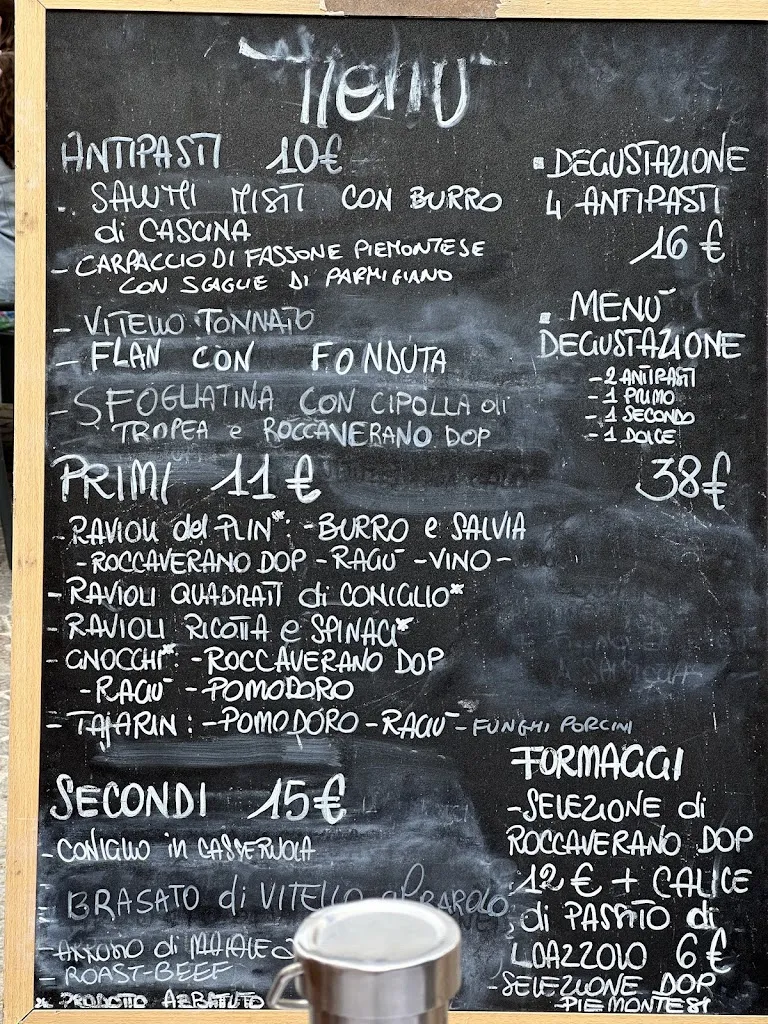 MENU
ANTIPASTI 10€
- SALUMI MISTI CON BURRO
di CASCINA
- CARPACCIO DI FASSONE PIEMONTESE
CON SCAGLIE DI PARMIGIANO
- VITELLO TONNATO
- FLAN CON FONDUTA
- SFOGLIATINA CON CIPOLLA di
TROPEA e ROCCAVERANO DOP
PRIMI 11€
- RAVIOLI del PLIN*: - BURRO e SALVIA
- ROCCAVERANO DOP - RAGÙ - VINO -
- RAVIOLI QUADRATI di CONIGLIO*
- RAVIOLI RICOTTA e SPINACI*
- GNOCCHI*: - ROCCAVERANO DOP
- RAGÙ - POMODORO
- TAJARIN: - POMODORO - RAGÙ - FUNGHI PORCINI
SECONDI 15€
- CONIGLIO in CASSERUOLA
- BRASATO di VITELLO al BAROLO
- ARROSTO di MAIALE
- ROAST-BEEF
* PRODOTTO ABBATTUTO
▪ DEGUSTAZIONE
4 ANTIPASTI
16 €
▪ MENÙ
DEGUSTAZIONE
- 2 ANTIPASTI
- 1 PRIMO
- 1 SECONDO
- 1 DOLCE
38€
FORMAGGI
- SELEZIONE di
ROCCAVERANO DOP
12 € + CALICE
di PASSITO di
LOAZZOLO 6 €
- SELEZIONE DOP
PIEMONTESI